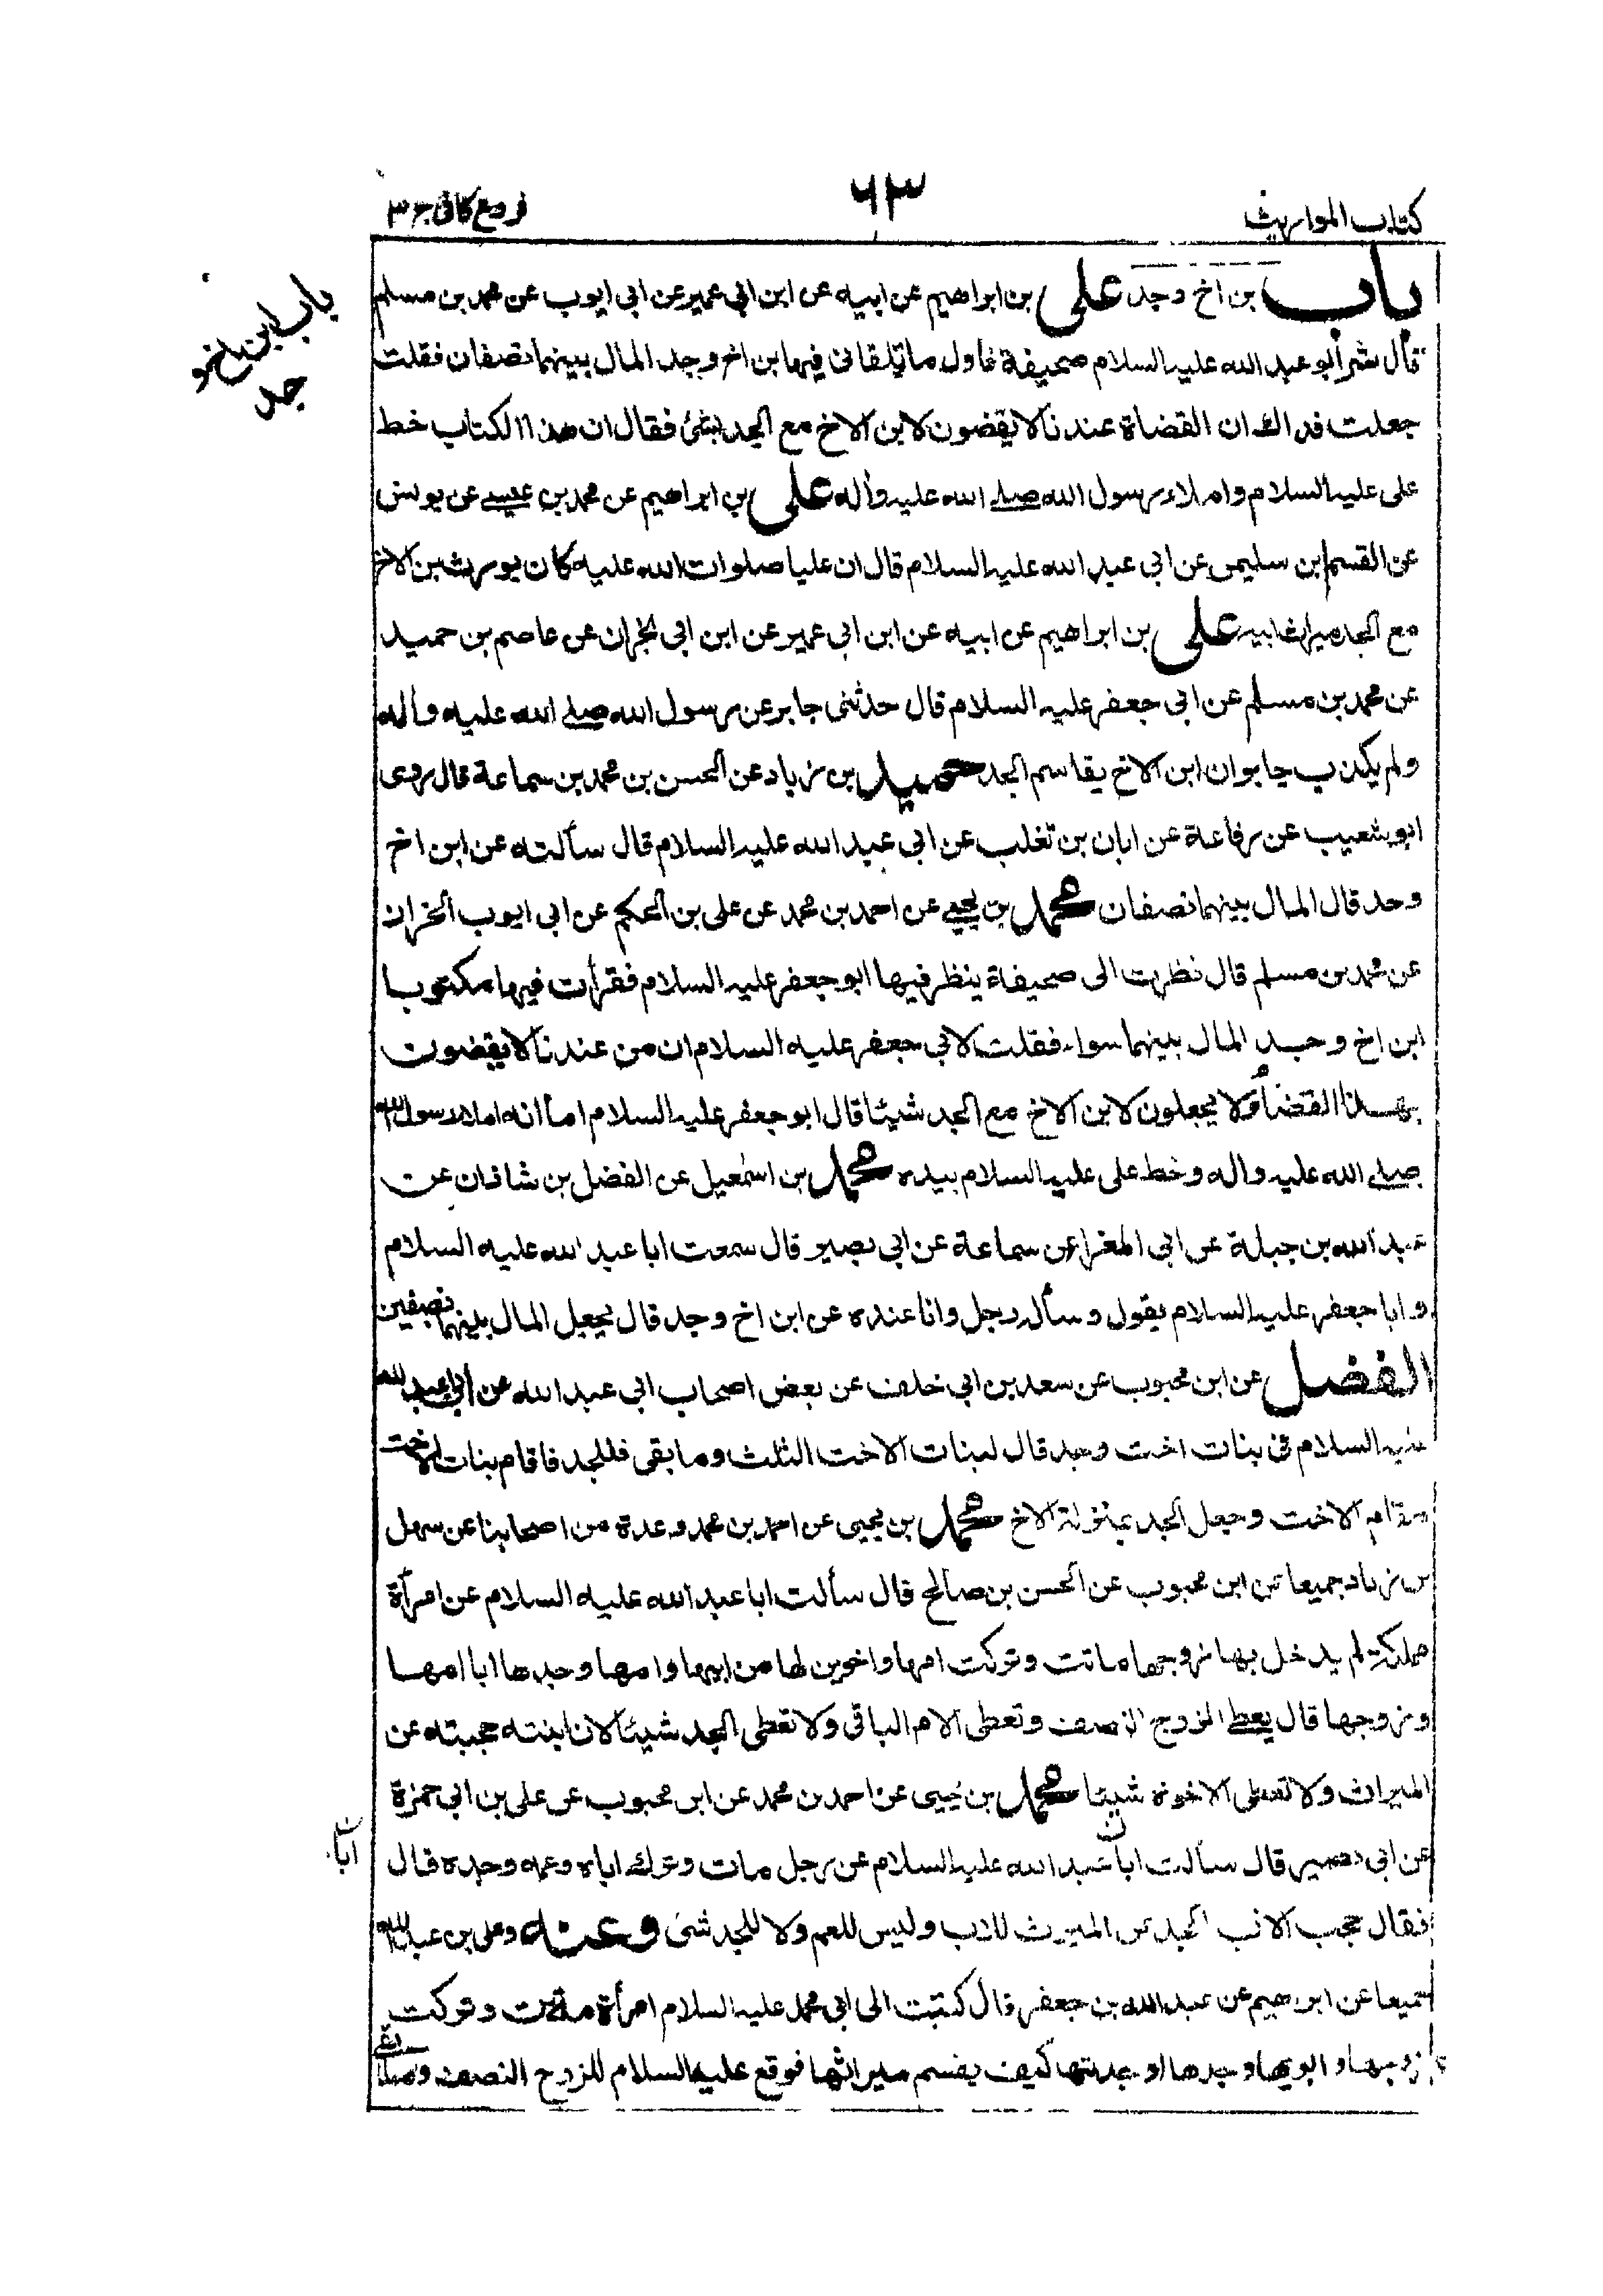 كتاب المواريث
٦٣
فروع كافى ج ٣
باب ابن اخ و
جد
باب بن اخ وجد على بن ابراهيم عن ابيه عن ابن ابى عمير عن ابى ايوب عن محمد بن مسلم
قال نشر أبو عبد الله عليه السلام صحيفة فاول ما تلقانى فيها ابن اخ وجد المال بينهما نصفان فقلت
جعلت فداك ان القضاة عندنا لا يقضون لابن الاخ مع الجد بشئ فقال ان هذا الكتاب خط
على عليه السلام واملاء رسول الله صلى الله عليه وآله على بن ابراهيم عن محمد بن عيسى عن يونس
عن القسم ابن سليمن عن ابى عبد الله عليه السلام قال ان عليا صلوات الله عليه كان يورث بن الاخ
مع الجد ميراث ابيه على بن ابراهيم عن ابيه عن ابن ابى عمير عن ابن ابى نجران عن عاصم بن حميد
عن محمد بن مسلم عن ابى جعفر عليه السلام قال حدثنى جابر عن رسول الله صلى الله عليه وآله
ولم يكذب جابر ان ابن الاخ يقاسم الجد حميد بن زياد عن الحسن بن محمد بن سماعة قال روى
ابو شعيب عن رفاعة عن ابان بن تغلب عن ابى عبد الله عليه السلام قال سألته عن ابن اخ
وجد قال المال بينهما نصفان محمد بن يحيى عن احمد بن محمد عن على بن الحكم عن ابى ايوب الخزاز
عن محمد بن مسلم قال نظرت الى صحيفة ينظر فيها ابو جعفر عليه السلام فقرأت فيها مكتوبا
ابن اخ وجد المال بينهما سواء فقلت لابى جعفر عليه السلام ان من عندنا لا يقضون
بهذا القضاء ولا يجعلون لابن الاخ مع الجد شيئا قال ابو جعفر عليه السلام اما انه املاء رسول الله
صلى الله عليه واله وخط على عليه السلام بيده محمد بن اسمعيل عن الفضل بن شاذان عن
عبد الله بن جبلة عن ابى المغرا عن سماعة عن ابى بصير قال سمعت ابا عبد الله عليه السلام
و ابا جعفر عليه السلام يقول وسأله رجل وانا عنده عن ابن اخ وجد قال يجعل المال بينهما نصفين
الفضل عن ابن محبوب عن سعد بن ابى خلف عن بعض اصحاب ابى عبد الله عن ابى عبد الله
عليه السلام فى بنات اخت وجد قال لبنات الاخت الثلث وما بقى فللجد فاقام بنات الاخت
مقام الاخت وجعل الجد بمنزلة الاخ محمد بن يحيى عن احمد بن محمد وعدة من اصحابنا عن سهل
بن زياد جميعا عن ابن محبوب عن الحسن بن صالح قال سألت ابا عبد الله عليه السلام عن امرأة
مملكة لم يدخل بها زوجها ماتت وتركت امها واخوين لها من ابيها وامها وجدها ابا امها
وزوجها قال يعطى الزوج النصف وتعطى الام الباقى ولا تعطى الجد شيئا لان ابنته حجبته عن
الميراث ولا تعطى الاخوة شيئا محمد بن يحيى عن احمد بن محمد عن ابن محبوب عن على بن ابى حمزة
عن ابى بصير قال سألت ابا عبد الله عليه السلام عن رجل مات وترك اباه وعمه وجده قال
فقال حجب الاب الجد عن الميراث للاب وليس للعم ولا للجد شئ وعنه وعلى بن عبد الله
جميعا عن ابرهيم عن عبد الله بن جعفر قال كتبت الى ابى محمد عليه السلام امرأة ماتت وتركت
زوجها و ابويها وجدها او جدتها كيف يقسم ميراثها فوقع عليه السلام للزوج النصف وما بقى